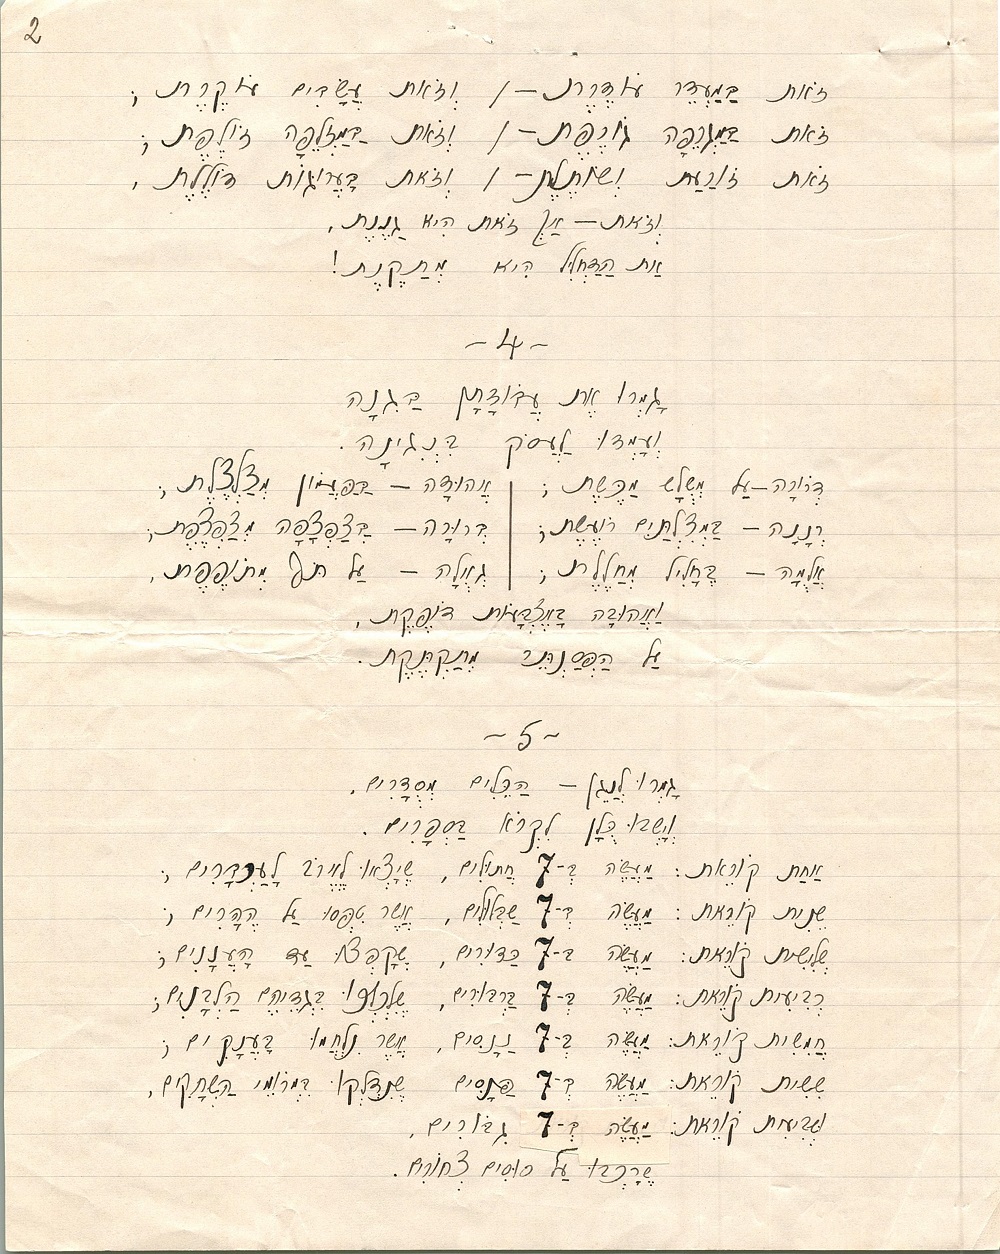 2
זֹאת בַּמַּעְדֵּר עוֹדֶרֶת – / וְזֹאת עֲשָׂבִים עוֹקֶרֶת ;
זֹאת בַּמַּגְרֵפָה גּוֹרֶפֶת – / וְזֹאת בַּמַּזְלֵפָה זוֹלֶפֶת ;
זֹאת זוֹרַעַת וְשׁוֹתֶלֶת – / וְזֹאת בָּעֲרוּגוֹת דּוֹלֶלֶת ,
וְזֹאת – אַךְ זֹאת הִיא גַּנֶּנֶת ,
אֶת הַדַּחְלִיל הִיא מְתַקֶּנֶת !
~ 4 ~
גָּמְרוּ אֶת עֲבוֹדָתָן בַּגִּנָּה
וְעָמְדוּ לַעֲסֹק בִּנְגִינָה .
דְּרוֹרָה – עַל מְשֻׁלָּשׁ מַקֶּשֶׁת ; | אֲהוּדָה – בַּפַּעֲמוֹן מְצַלְצֶלֶת ;
רְנָנָה – בַּמְּצִלְתַּיִם רוֹעֶשֶׁת ; | בְּרוּרָה – בַּצַּפְצֵפָה מְצַפְצֶפֶת ;
אֻלְמָה – בֶּחָלִיל מְחַלֶּלֶת ; | גְּאוּלָה – עַל תֹּף מְתוֹפֶפֶת ,
וַאֲהוּבָה בָּאֶצְבָּעוֹת דּוֹפֶקֶת ,
עַל הַפְּסַנְתֵּר מְתַקְתֶּקֶת .
~ 5 ~
גָּמְרוּ לְנַגֵּן – הַכֵּלִים מְסֻדָּרִים ,
וְיָשְׁבוּ כֻּלָּן לִקְרֹא בַּסְּפָרִים .
אַחַת קוֹרֵאת : מַעֲשֶׂה בְּ-7 חֲתוּלִים , שֶׁיָּצְאוּ לֶאֱרֹב לָעַכְבָּרִים ;
שֵׁנִית קוֹרֵאת : מַעֲשֶׂה בְּ-7 שַׁבְּלוּלִים , אֲשֶׁר טִפְּסוּ עַל הֶהָרִים ;
שְׁלִישִׁית קוֹרֵאת : מַעֲשֶׂה בְּ-7 כַּדּוּרִים , שֶׁקָּפְצוּ עַד הָעֲנָנִים ;
רְבִיעִית קוֹרֵאת : מַעֲשֶׂה בְּ-7 בַּרְבּוּרִים , בִּגְדֵיהֶם הַלְּבָנִים ;
חֲמִשִׁית קוֹרֵאת : מַעֲשֶׂה בְּ-7 נַנָּסִים , אֲשֶׁר נִלְחֲמוּ בָּעֲנָקִים ;
שִׁשִּׁית קוֹרֵאת : מַעֲשֶׂה בְּ-7 פַּנָּסִים שֶׁנִּדְלְקוּ בִּמְרוֹמֵי הַשְּׁחָקִים ,
וּשְׁבִיעִית קוֹרֵאת : מַעֲשֶׂה בְּ-7 גִּבּוֹרִים ,
שֶׁרָכְבוּ עַל סוּסִים צְחוֹרִים .